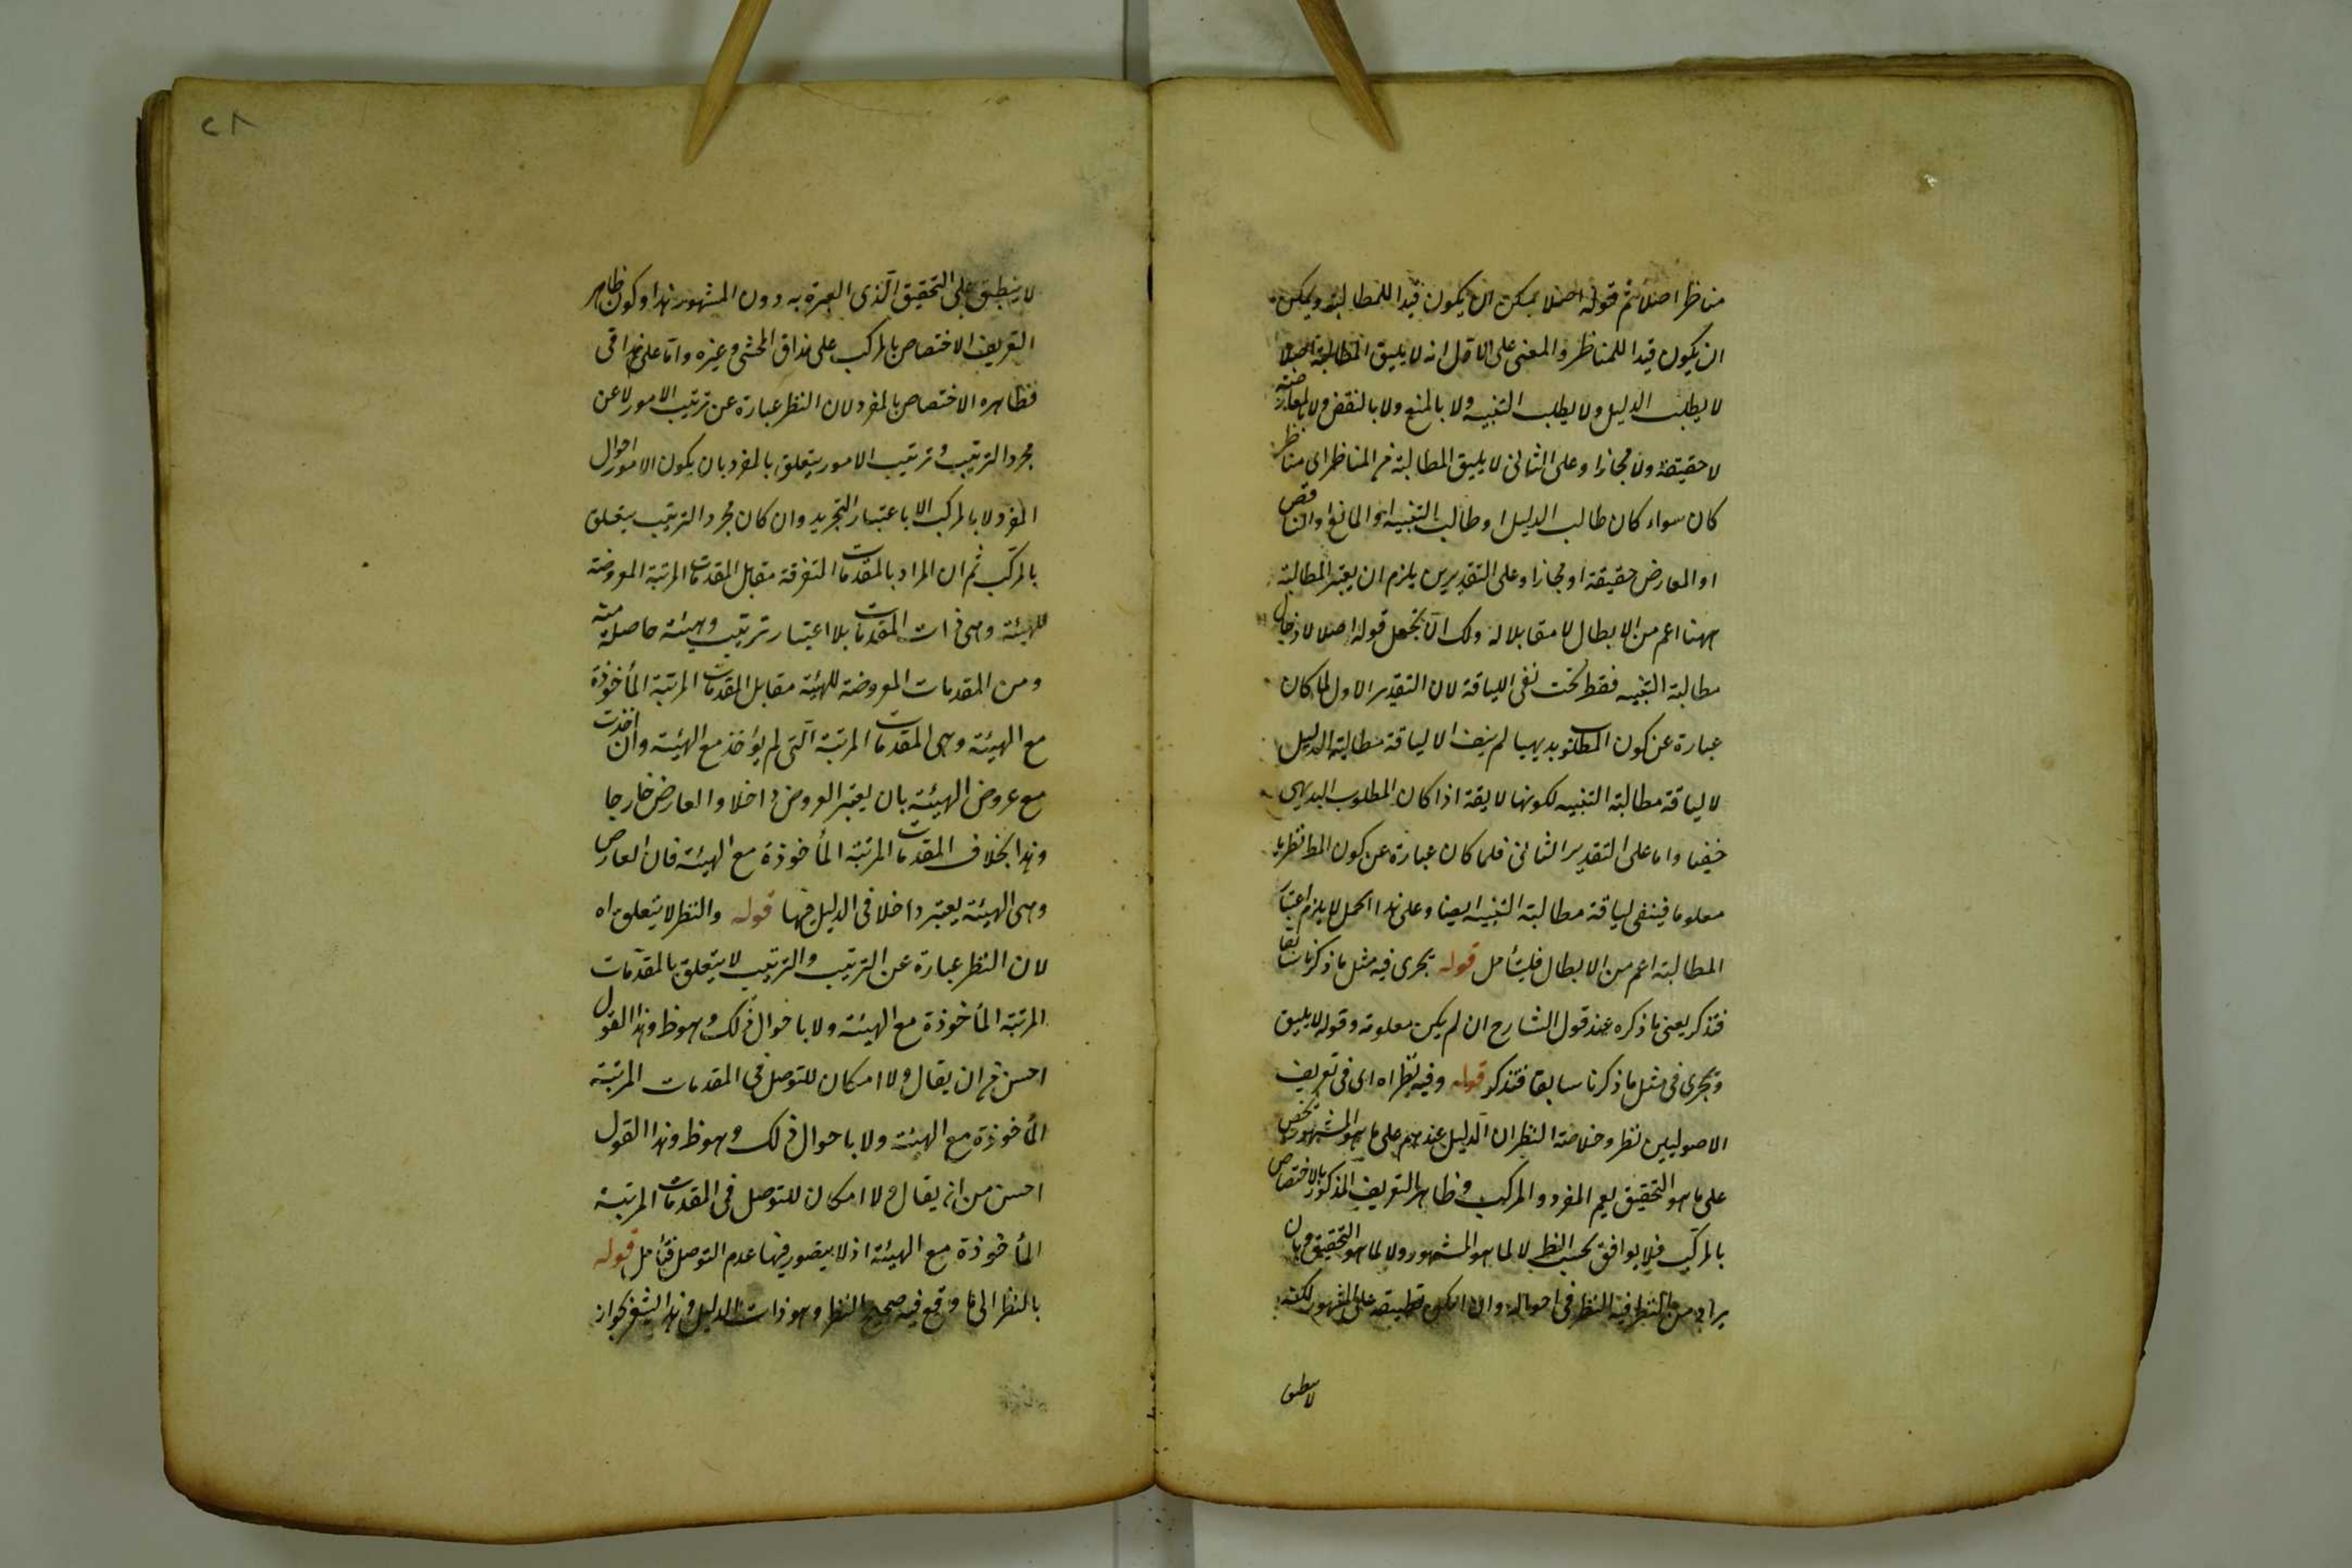 مناظرا اصلا ثم قوله اصلا يمكن ان يكون قيدا للمطالبة ويمكن
ان يكون قيدا للمناظر والمعنى على الاول انه لا يليق المطالبة اصلا
لا يطلب الدليل ولا يطلب التنبيه ولا بالمنع ولا بالنقض ولا بالمعارضة
لا حقيقة ولا مجازا وعلى الثانى لا يليق المطالبة من المناظر اى مناظر
كان سواء كان طالب الدليل او طالب التنبيه او المانع او الناقض
او المعارض حقيقة او مجازا وعلى التقديرين يلزم ان يعتبر المطالبة
ههنا اعم من الابطال لا مقابلا له ولك ان تجعل قوله اصلا لادخال
مطالبة التنبيه فقط تحت نفى اللياقة لان التقدير الاول لما كان
عبارة عن كون المطلوب بديهيا لم ينف الا لياقة مطالبة الدليل
لا لياقة مطالبة التنبيه لكونها لايقة اذا كان المطلوب البديهى
خفيا واما على التقدير الثانى فلما كان عبارة عن كون المط نظريا
معلوما فينفى لياقة مطالبة التنبيه ايضا وعلى هذا الحمل لا يلزم اعتبار
المطالبة اعم من الابطال فليتأمل قوله يجرى فيه مثل ما ذكرنا سابقا
فتذكر يعنى ما ذكره عند قول الشارح ان لم يكن معلومة وقوله لا يليق
ويجرى فى مثل ما ذكرنا سابقا فتذكر قوله وفيه نظر اه اى فى تعريف
الاصوليين نظر وخلاصة النظر ان الدليل عندهم على ما هو المشهور يختص
على ما هو التحقيق يعم المفرد والمركب وظاهر التعريف المذكور الاختصاص
بالمركب فلا يوافق بحسب الظ لا لما هو المشهور ولا لما هو التحقيق وبان
يراد من النظر فيه النظر فى احواله وان امكن تطبيقه على المشهور لكنه
لا ينطبق
٢٨
لا ينطبق على التحقيق الذى العبرة به دون المشهور هذا وكون ظاهر
التعريف الاختصاص بالمركب على مذاق المحشى وغيره واما على مذاقى
فظاهره الاختصاص بالمفرد لان النظر عبارة عن ترتيب الامور لا عن
مجرد الترتيب وترتيب الامور يتعلق بالمفرد بان يكون الامور احوال
المفرد لا بالمركب الا باعتبار التجريد وان كان مجرد الترتيب يتعلق
بالمركب ثم ان المراد بالمقدمات المتفرقة مقابل المقدمات المرتبة المعروضة
للهيئة وهى ذات المقدمات بلا اعتبار ترتيب وهيئة حاصلة منه
ومن المقدمات المعروضة للهيئة مقابل المقدمات المرتبة المأخوذة
مع الهيئة وهى المقدمات المرتبة التى لم يؤخذ مع الهيئة وان اخذت
مع عروض الهيئة بان يعتبر العروض داخلا والعارض خارجا
وهذا بخلاف المقدمات المرتبة المأخوذة مع الهيئة فان العارض
وهى الهيئة يعتبر داخلا فى الدليل فيها قوله والنظر لا يتعلق اه
لان النظر عبارة عن الترتيب والترتيب لا يتعلق بالمقدمات
المرتبة المأخوذة مع الهيئة ولا باحوال ذلك وهو ظ وهذا القول
احسن من ان يقال ولا امكان للتوصل فى المقدمات المرتبة
المأخوذة مع الهيئة ولا باحوال ذلك وهو ظ وهذا القول
احسن من ان يقال ولا امكان للتوصل فى المقدمات المرتبة
المأخوذة مع الهيئة اذ لا يتصور فيها عدم التوصل فتأمل قوله
بالنظر الى ما وقع فيه صحيح النظر وهو ذات الدليل وهذا التغير بجواز